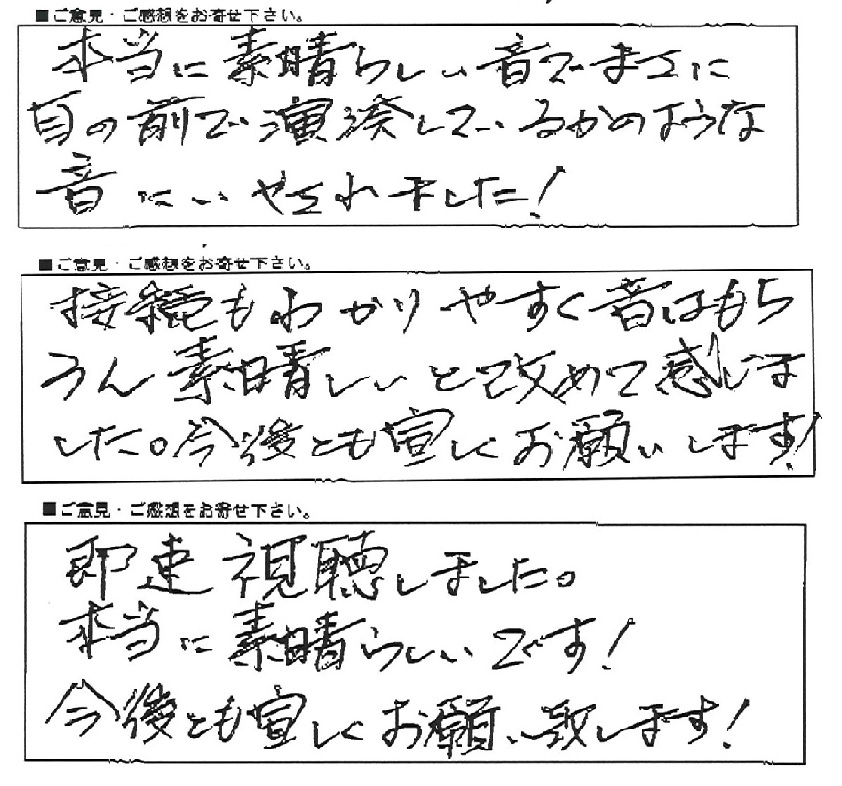 ■ご意見・ご感想をお寄せ下さい。
本当に素晴らしい音でまさに
目の前で演湊しているかのような
音にいやされました！
■ご意見・ご感想をお寄せ下さい。
接続もわかりやすく音はもち
ろん素晴しいと改めて感じま
した。今後とも宜しくお願いします！
■ご意見・ご感想をお寄せ下さい。
即速視聴しました。
本当に素晴らしいです！
今後とも宜しくお願い致します！